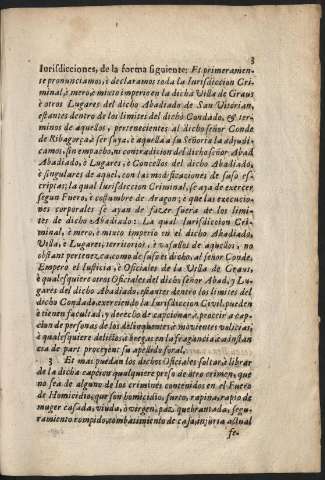 3
Iurisdicciones, de la forma siguiente: Et primeramen-
te pronunciamos, è declaramos toda la Iurisdiccion Cri-
minal, è mero, è mixto imperio en la dicha Villa de Graus
è otros Lugares del dicho Abadiado de San Vitorian,
estantes dentro de los limites del dicho Condado, & ter-
minos de aquellos, pertenecientes al dicho señor Conde
de Ribagorça, è ser suya, è aquella a su Señoria la adjudi-
camos, sin empacho, ni contradicion del dicho señor Abad
Abadiado, è Lugares, è Concellos del dicho Abadiado,
è singulares de aquel, con las modificaciones de suso es-
criptas; la qual Iurisdiccion Criminal, se aya de exercer
segun Fuero, è costumbre de Aragon; è que las execucio-
nes corporales se ayan de fazer fuera de los limi-
tes de dicho Abadiado: La qual Iurisdiccion Cri-
minal, è mero, è mixto imperio en el dicho Abadiado,
Villa, è Lugares, territorios, è vasallos de aquellos, no
obstant pertenezca, como de suso es dicho, al señor Conde,
Empero el Iusticia, è Oficiales de la Villa de Graus,
è qualesquiere otros Oficiales del dicho señor Abad, y Lu-
gares del dicho Abadiado, estantes dentro los limites del
dicho Condado, exerciendo la Iurisdiccion Civil, pueden
è tienen facultad, y derecho de capcionar, è proceir a cap-
cion de personas de los delinquentes, è movientes valicias,
è qualesquiere delictos, è vegas en la fragancia, è a instan-
cia de part proceyent su apellido foral.
3 Et mas puedan los dichos Oficiales soltar, è librar
de la dicha capcion qualquiere preso de otro crimen, que
no sea de alguno de los crimines contenidos en el Fuero
de Homicidio, que son homicidio, furto, rapina, rapto de
muger casada, viuda, ò virgen, paz quebrantada, segu-
ramiento rompido, combatimiento de casa, injuria actual
fe-